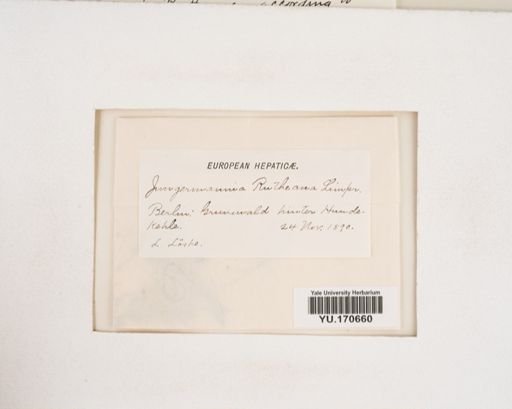 according to
EUROPEAN HEPATICÆ.
Jungermannia Rutheana Limpr.
Berlin: Grunewald hinter Hunde-
kehle. 24 Nov. 1890.
L. Löske.
Yale University Herbarium
YU.170660